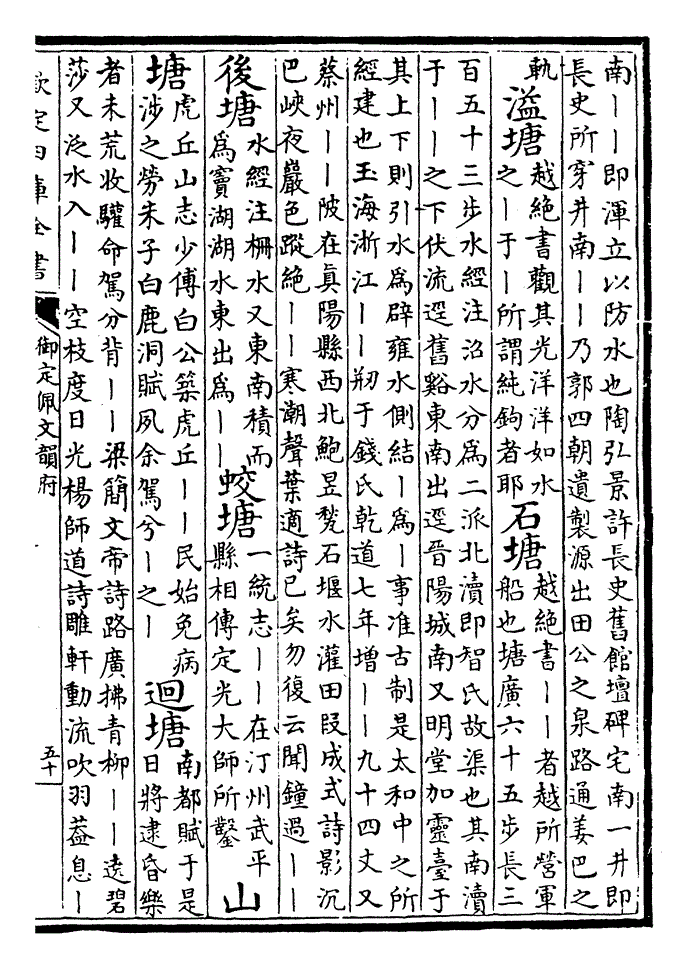 南——即渾立以防水也陶弘景許長史舊館壇碑宅南一井即
長史所穿井南——乃郭四朝遺製源出田公之泉路通姜巴之
軌
溢塘
越絶書觀其光洋洋如水
之—于—所謂純鉤者耶
石塘
越絶書——者越所營軍
船也塘廣六十五步長三
百五十三步水經注沿水分爲二派北瀆即智氏故渠也其南瀆
于——之下伏流逕舊谿東南出逕晉陽城南又明堂加靈臺于
其上下則引水爲辟雍水側結—爲—事准古制是太和中之所
經建也玉海浙江——剏于錢氏乾道七年增——九十四丈又
蔡州——陂在眞陽縣西北鮑昱甃石堰水灌田段成式詩影沉
巴峽夜巖色蹤絶——寒潮聲葉適詩已矣勿復云聞鐘過——
後塘
水經注柵水又東南積而
爲竇湖湖水東出爲——
蛟塘
一統志——在汀州武平
縣相傳定光大師所鑿
山
塘
虎丘山志少傅白公築虎丘——民始免病
涉之勞朱子白鹿洞賦夙余駕兮—之—
迴塘
南都賦于是
日將逮昏樂
者未荒收驩命駕分背——梁簡文帝詩路廣拂青柳——遶碧
莎又泛水入——空枝度日光楊師道詩雕軒動流吹羽葢息—
欽定四庫全書
御定佩文韻府
五十